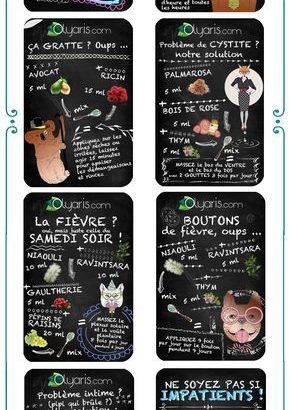 d'heure et boutez
les heures
Olyaris.com
ÇA GRATTE ? Oups ...
AVOCAT
5 ml
+
RICIN
15 ml
mix
Appliquez sur les
zones sèches ou
irritées, laissez
agir 15 minutes
pour apaiser
les démangeaisons
et rincez
Olyaris.com
Problème de CYSTITE ?
notre solution
PALMAROSA
5 ml
+
BOIS DE ROSE
5 ml
+
THYM
5 ml
mix
MASSEZ LE BAS DU VENTRE
et LE BAS DU DOS
avec 2 GOUTTES 3 fois par jour
Olyaris.com
La FIÈVRE ?
oui, mais juste celle du
SAMEDI SOIR !
NIAOULI
10 ml
+
RAVINTSARA
10 ml
+
GAULTHERIE
5 ml
+
PÉPINS DE
RAISINS
20 ml
mix
=
Massez le
plexus solaire
et la voûte
plantaire
Olyaris.com
BOUTONS
de fièvre, oups ...
NIAOULI
5 ml
+
RAVINTSARA
5 ml
+
THYM
5 ml
mix
APPLIQUEZ 4 fois
par jour sur le bouton
pendant 4 jours
Olyaris.com
Problème intime ?
(pipi qui brûle ?)
NE SOYEZ PAS SI
IMPATIENTS !